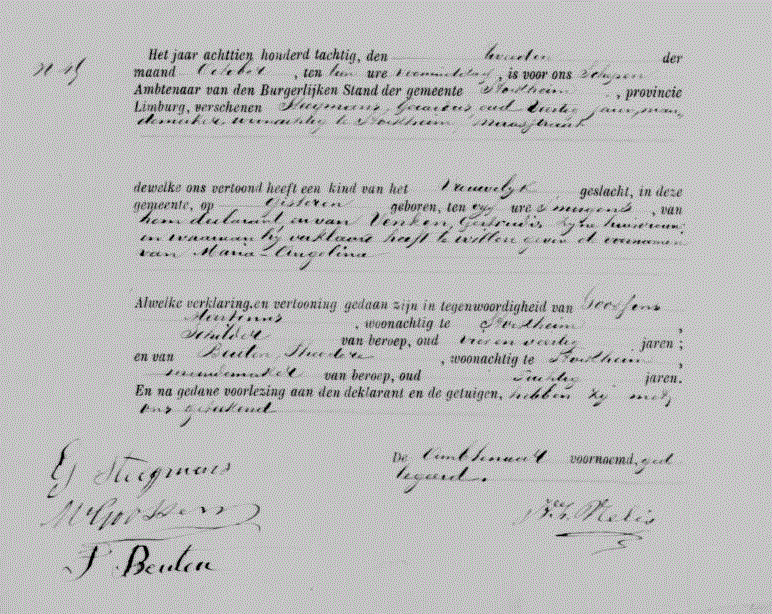 Het jaar achttien honderd tachtig, den tweeden der
maand October, ten tien ure voormiddag, is voor ons Schepen
Ambtenaar van den Burgerlijken Stand der gemeente Stockheim, provincie
Limburg, verschenen Stegmans, oud veertig jaren, man
demaker, woonachtig te Stockheim, Maasstraat
dewelke ons vertoond heeft een kind van het Vrouwelyk geslacht, in deze
gemeente, op gisteren geboren, ten vyf ure s'morgens, van
hem declarant, en van Venken, Gertrudis zyne huisvrouw,
en waaraan hy verklaard heeft te willen geven de voornamen
van Maria-Angelina
Alwelke verklaring en vertooning gedaan zijn in tegenwoordigheid van Goossens
Martinus, woonachtig te Stockheim,
Schilder van beroep, oud vier en veertig jaren;
en van Beuten, Theodore, woonachtig te Stockheim,
mandemaker van beroep, oud tachtig jaren.
En na gedane voorlezing aan den deklarant en de getuigen, hebben zij met
ons geteekend
De Ambtenaar voornoemd, ged
legeerd.
Stegmans
M Goossens
Nelis
T Beuten